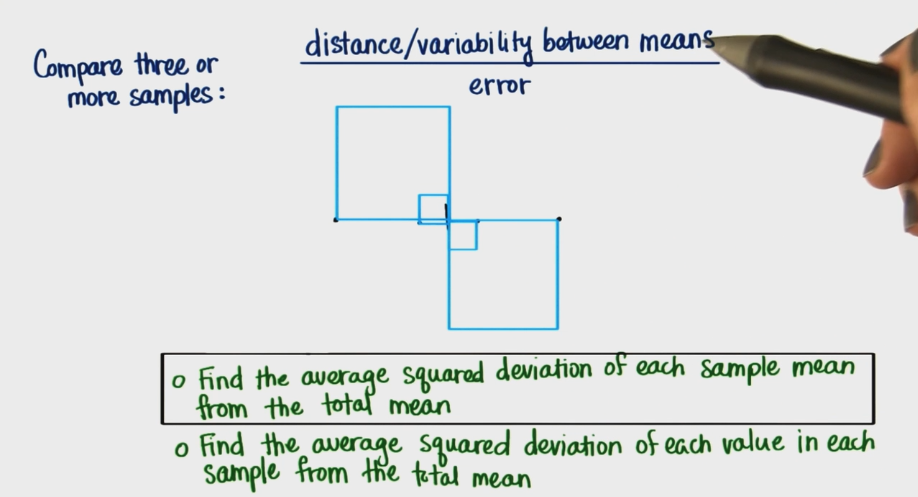 Compare three or
more samples:
distance/variability between means
error
o Find the average squared deviation of each sample mean
from the total mean
o Find the average squared deviation of each value in each
sample from the total mean